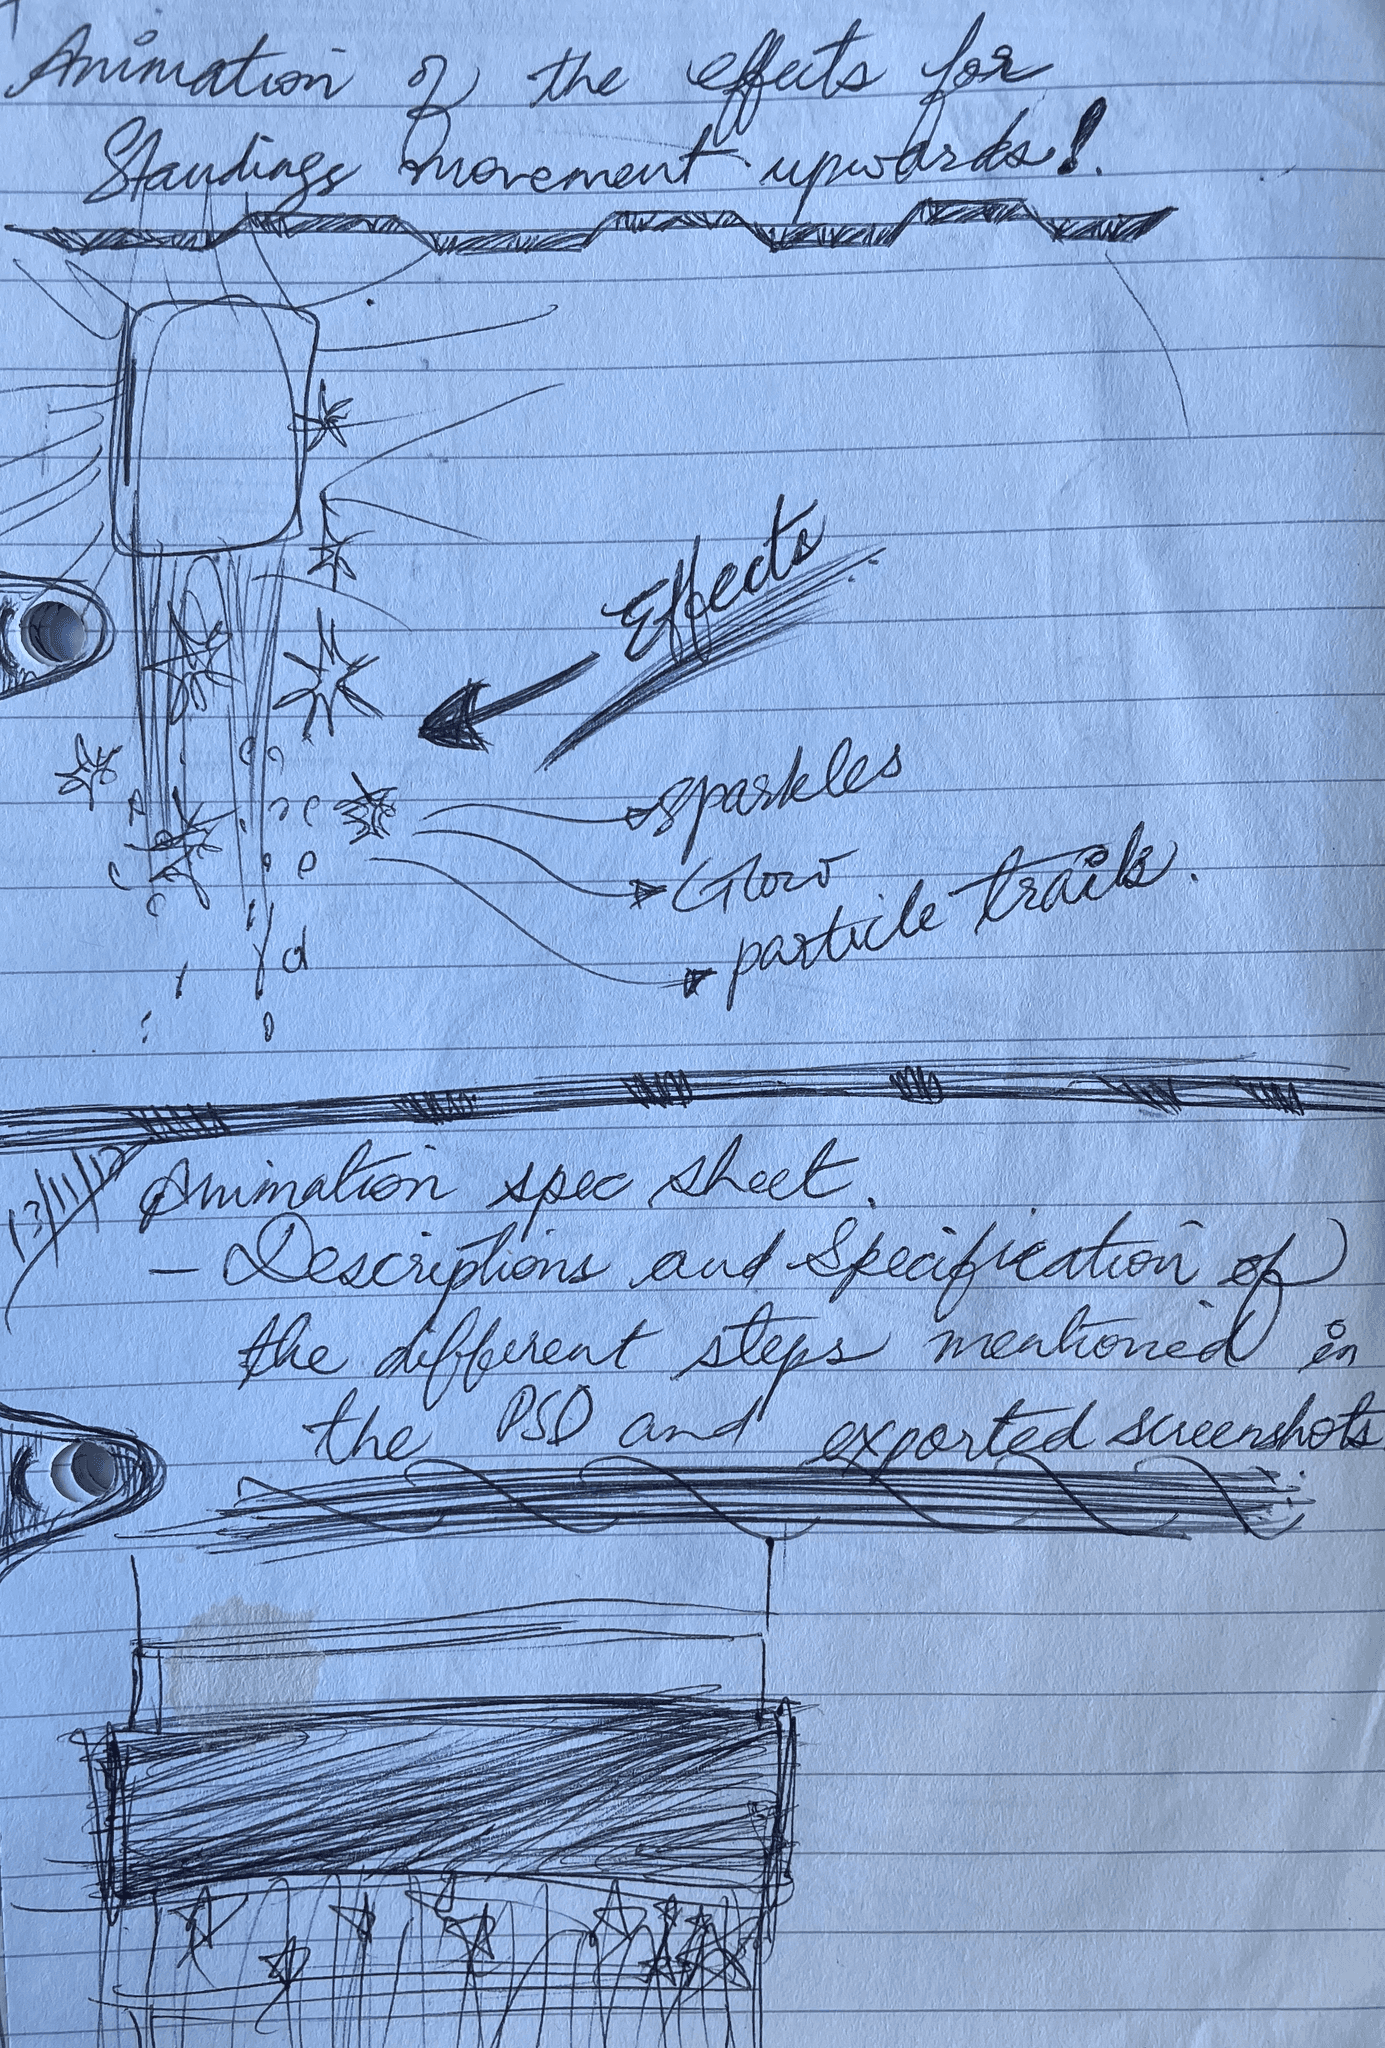 Animation of the effects for
Standings movement upwards!
Effects
sparkles
Glow
particle trails.
Animation spec sheet.
- Descriptions and Specification of
the different steps mentioned in
the PSD and exported screenshots